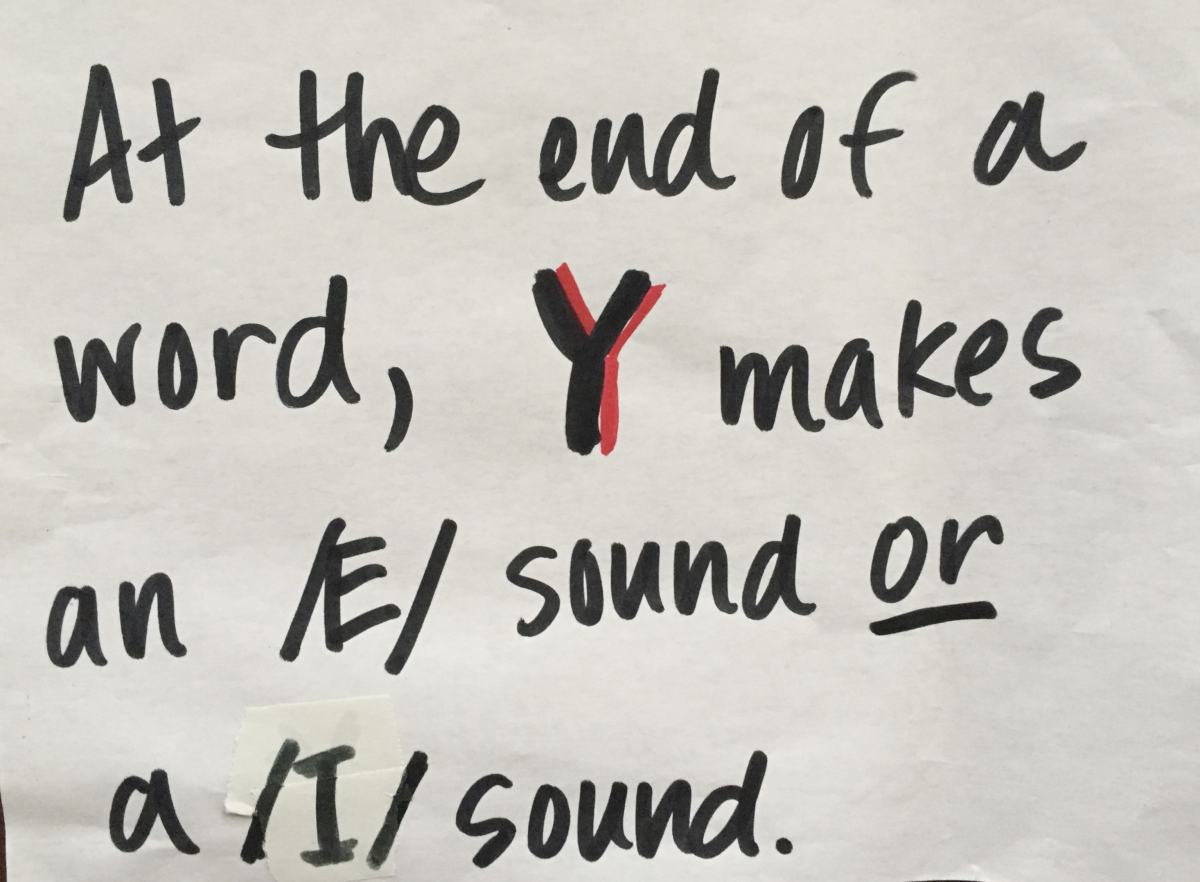 At the end of a
word, Y makes
an /E/ sound or
a /I/ sound.